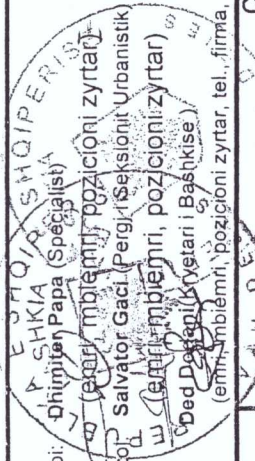 Dhimiter Papa (Specialist)
(emri, mbiemri, pozicioni zyrtar)
Salvator Gaci, Pergj. i Seksionit Urbanistik)
(emri, mbiemri, pozicioni zyrtar)
Ded Kryetari i Bashkise)
(emri, mbiemri, pozicioni zyrtar, tel., firma,
SHQIPERIS